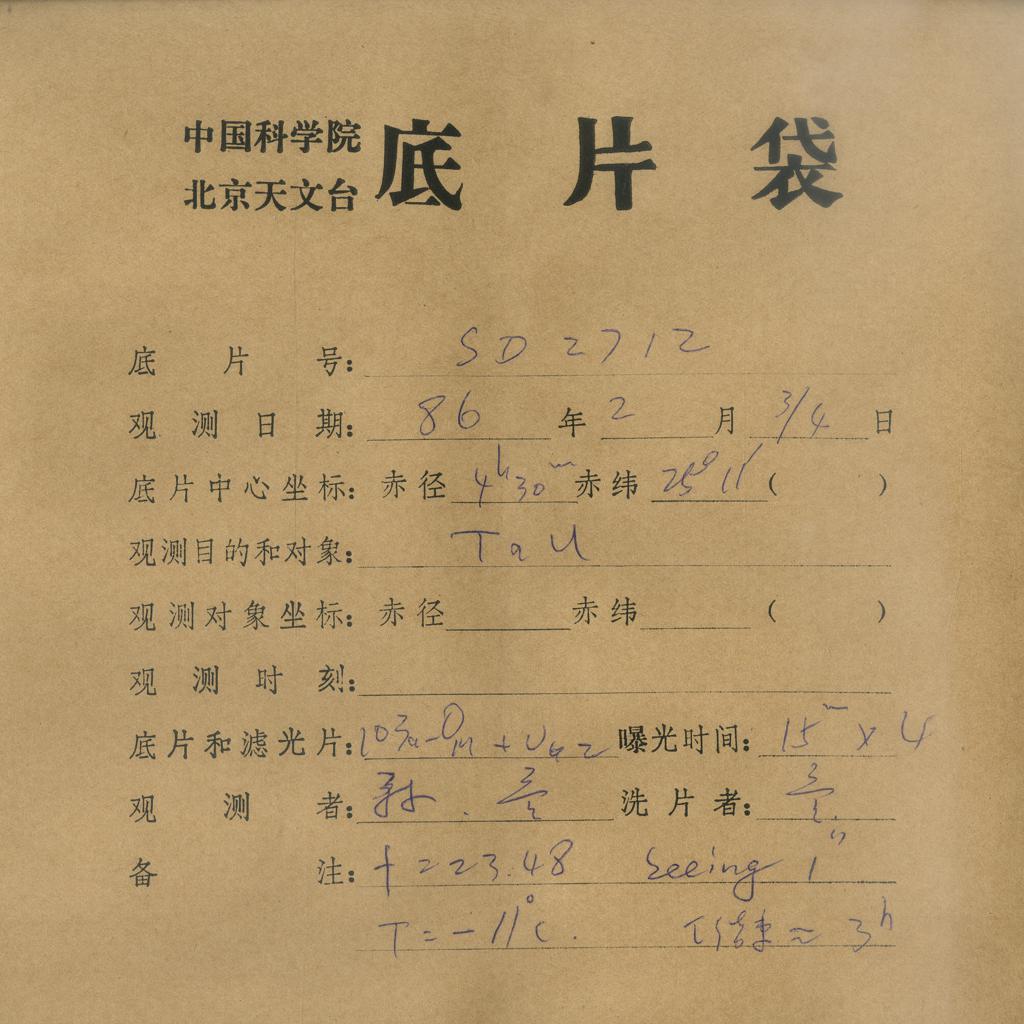 中国科学院
北京天文台
底片袋
底片号: SD2712
观测日期: 86年2月3/4日
底片中心坐标: 赤径4h30m赤纬25°11′( )
观测目的和对象: Tau
观测对象坐标: 赤径 赤纬 ( )
观测时刻:
底片和滤光片: 曝光时间: 15m×4
观测者: 洗片者:
备注: f=23.48 seeing 1″
T=-11℃. ≈3h